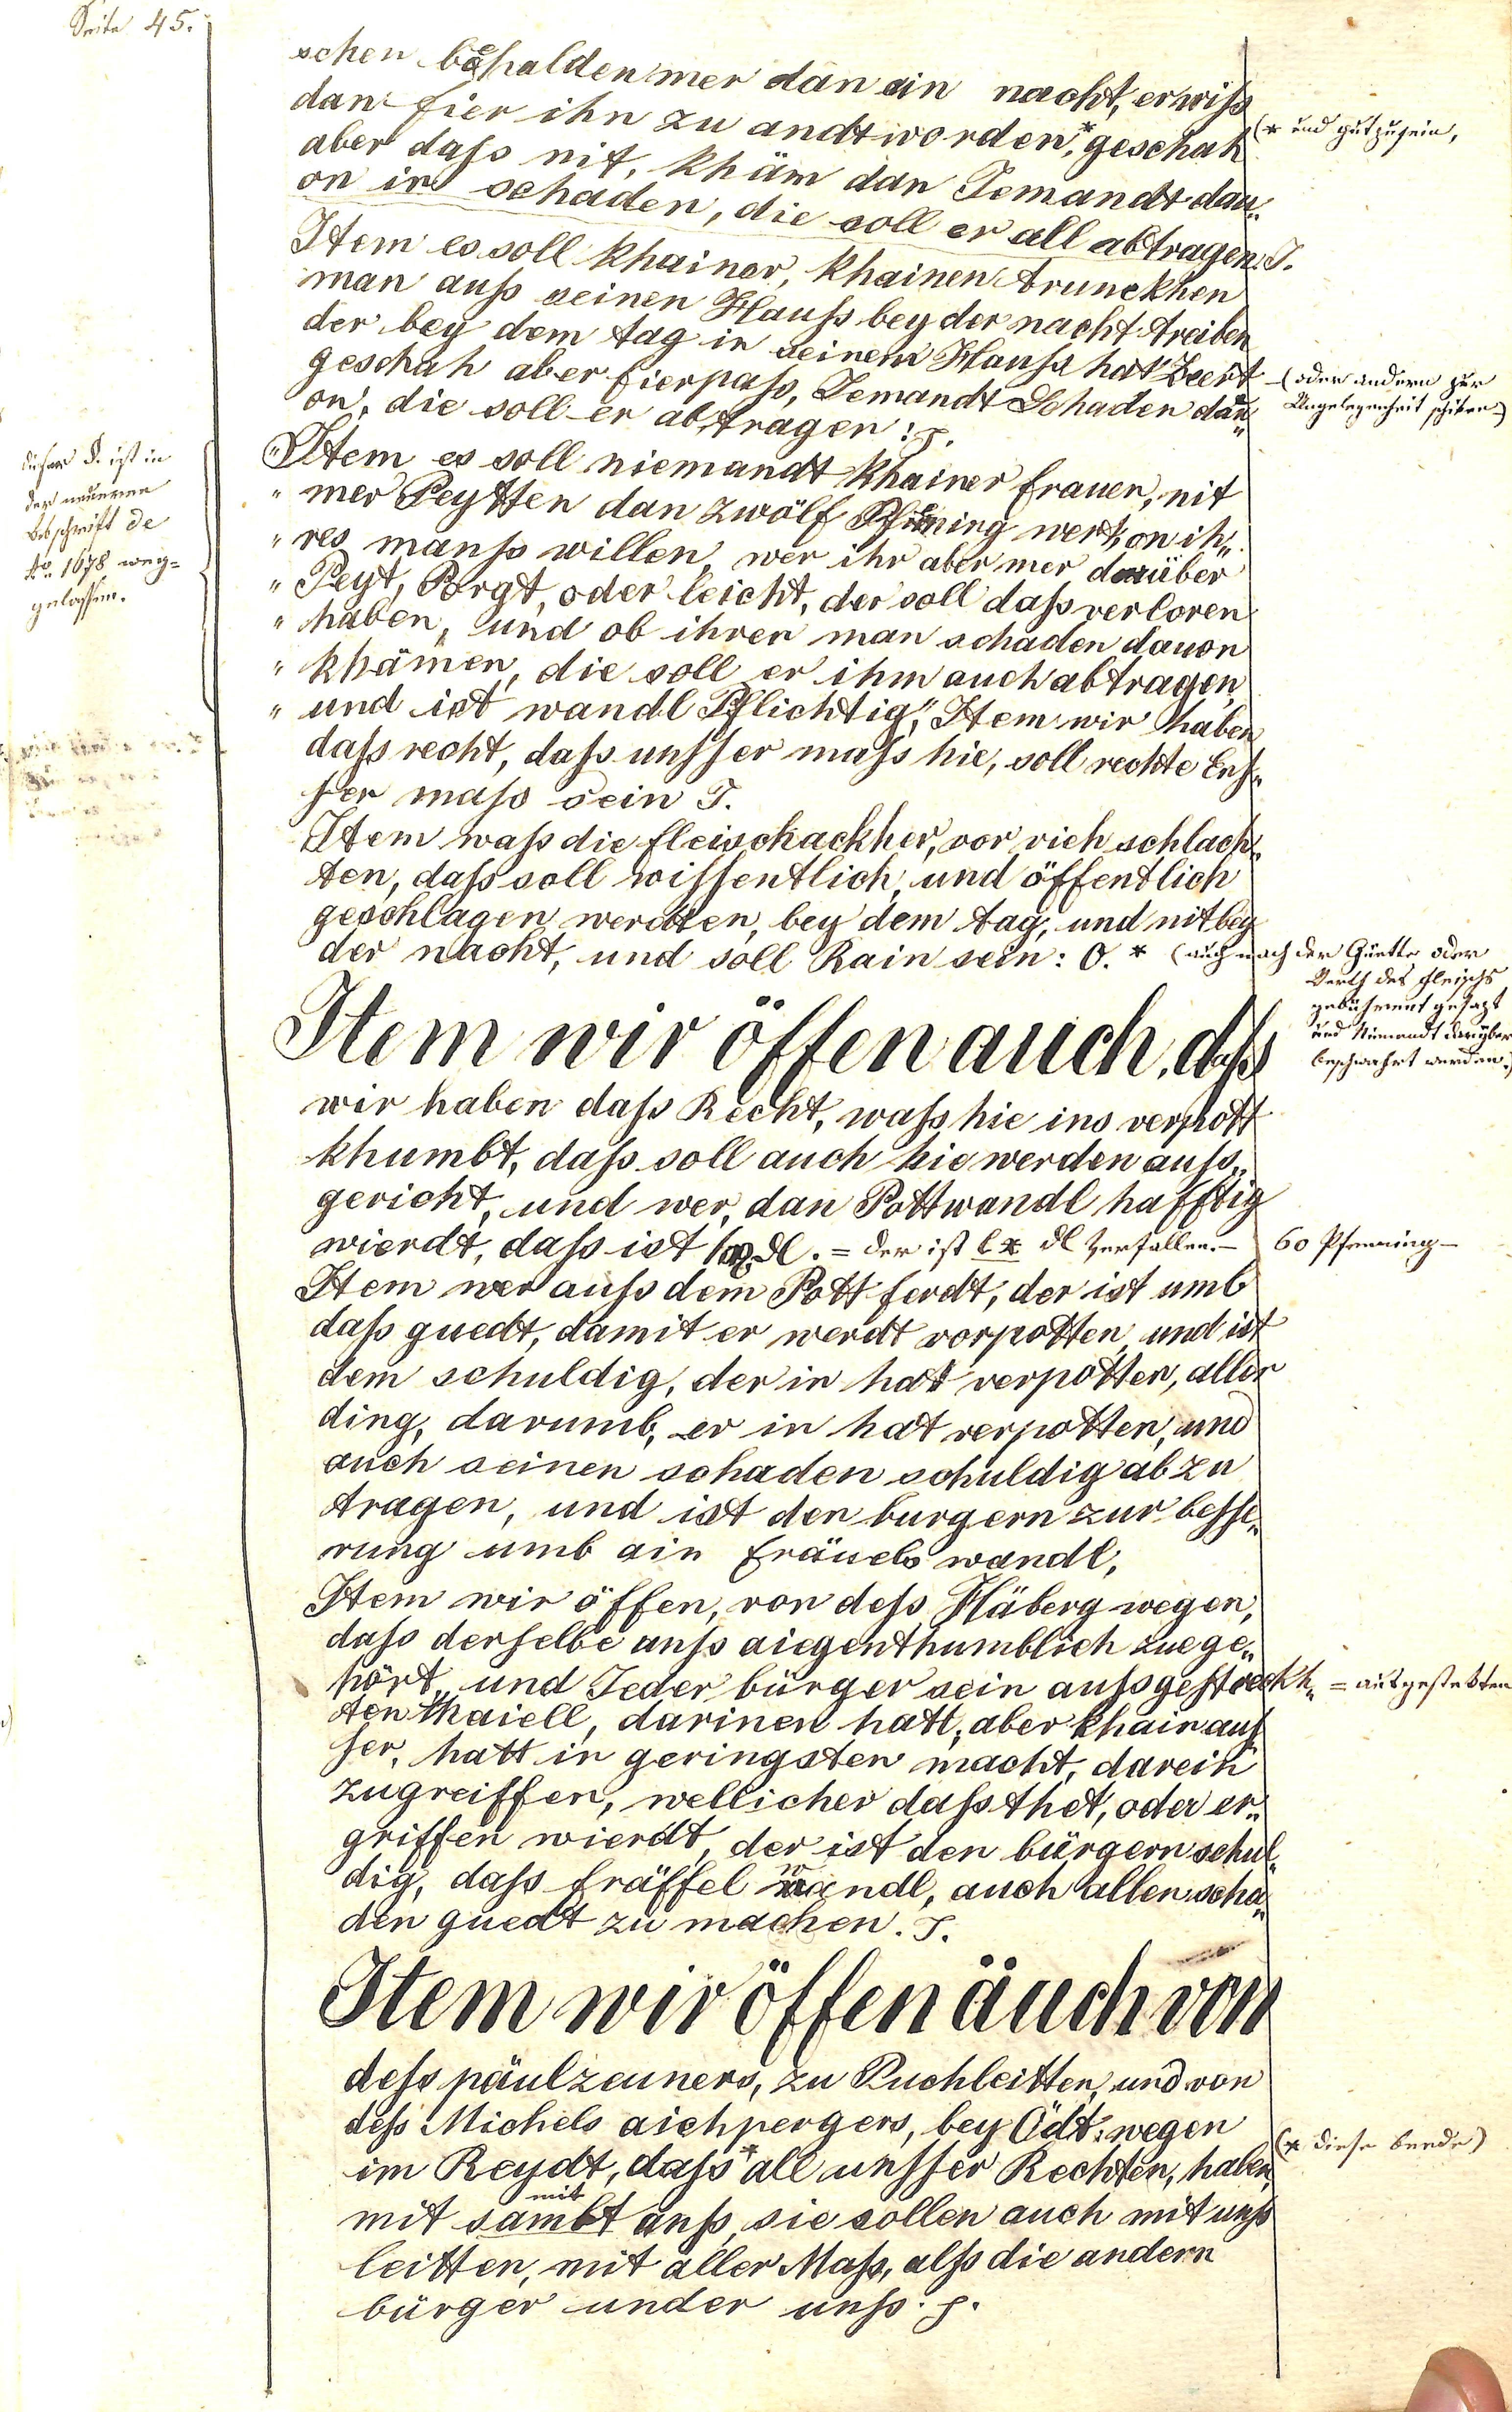 Seite 45.
schen behalden mer dan ain nacht, er wiß
dan fier ihn zu andtworden,* geschah
(* und gutzusein,
aber daß nit, khäm dan Jemandt dau„
on in schaden, die soll er all abtragen. J.
Item es soll khainer, khainen trunckhen
man auß seinen Hauß bey der nacht treiben
der bey dem tag in seinem Hauß hat Zeert
(oder andern zur
Ungelegenheit schiken.)
geschäh aber fierpaß, Jemandt Schaden dau„
on, die soll er abtragen: J.
„Item es soll niemandt khainer frauen, nit
„ mer Peytten dan zwölf Pfening wert, on ih„
„ res manß willen, wer ihr aber mer darüber
„ Peyt, Porgt, oder leicht, der soll daß verloren
„ haben, und ob ihren man schaden dauon
„ khämen, die soll er ihm auch abtragen,
„ und ist wandl Pflichtig,“ Item wir haben
dieser §. ist in
der neueren
Abschrift de
Ao. 1678 weg=
gelassen.
daß recht, daß unsser maß hie, soll rechte Enß„
ser maß sein J.
Item waß die fleischackher, vor vich schlach„
ten, daß soll wissentlich, und öffentlich
geschlagen werdten, bey dem tag, und nit bey
der nacht, und soll Rain sein: O. * (auch nach der Güette oder
Werth des fleischs
gebührent gesazt
und Niemandt darüber
beschwehrt werden.)
Item wir öffen auch, daß
wir haben daß Recht, waß hie ins verpott
khumbt, daß soll auch hie werden auß„
gericht, und wer, dan Pottwandl hafftig
wierdt, daß ist lx dl. = der ist lx dl verfallen. — 60 Pfenning —
Item wer auß dem Pott ferdt, der ist umb
daß guedt, damit er werdt vorpotten, und ist
dem schuldig, der in hat verpotten, aller
ding, darumb, er in hat verpotten, und
auch seinen schaden schuldig ab zu
tragen, und ist den burgern zur besse„
rung umb ain fräuels wandl,
Item wir öffen, von deß Häberg wegen,
daß derselbe unß aiegenthumblich zue ge„
hört, und Jeder bürger sein außgesteckh„ = ausgestekten
ten thaiell, darinen hatt, aber khain auß
ser, hatt in geringsten macht, darein
zugreiffen, wellicher daß thet, oder er„
griffen wierdt, der ist den bürgern schul„
dig, daß fräffel wandl, auch allen scha„
den guedt zu machen. J.
Item wir öffen äuch von
deß päulzauners, zu Puchleitten, und von
deß Michels aichpergers, bey Ödt, wegen
im Reydt, daß* all unsser Rechten, haben,
(* diese beede)
mit
mit sambt unß, sie sollen auch mit unß
leitten, mit aller Maß, alß die andern
bürger under unß. J.